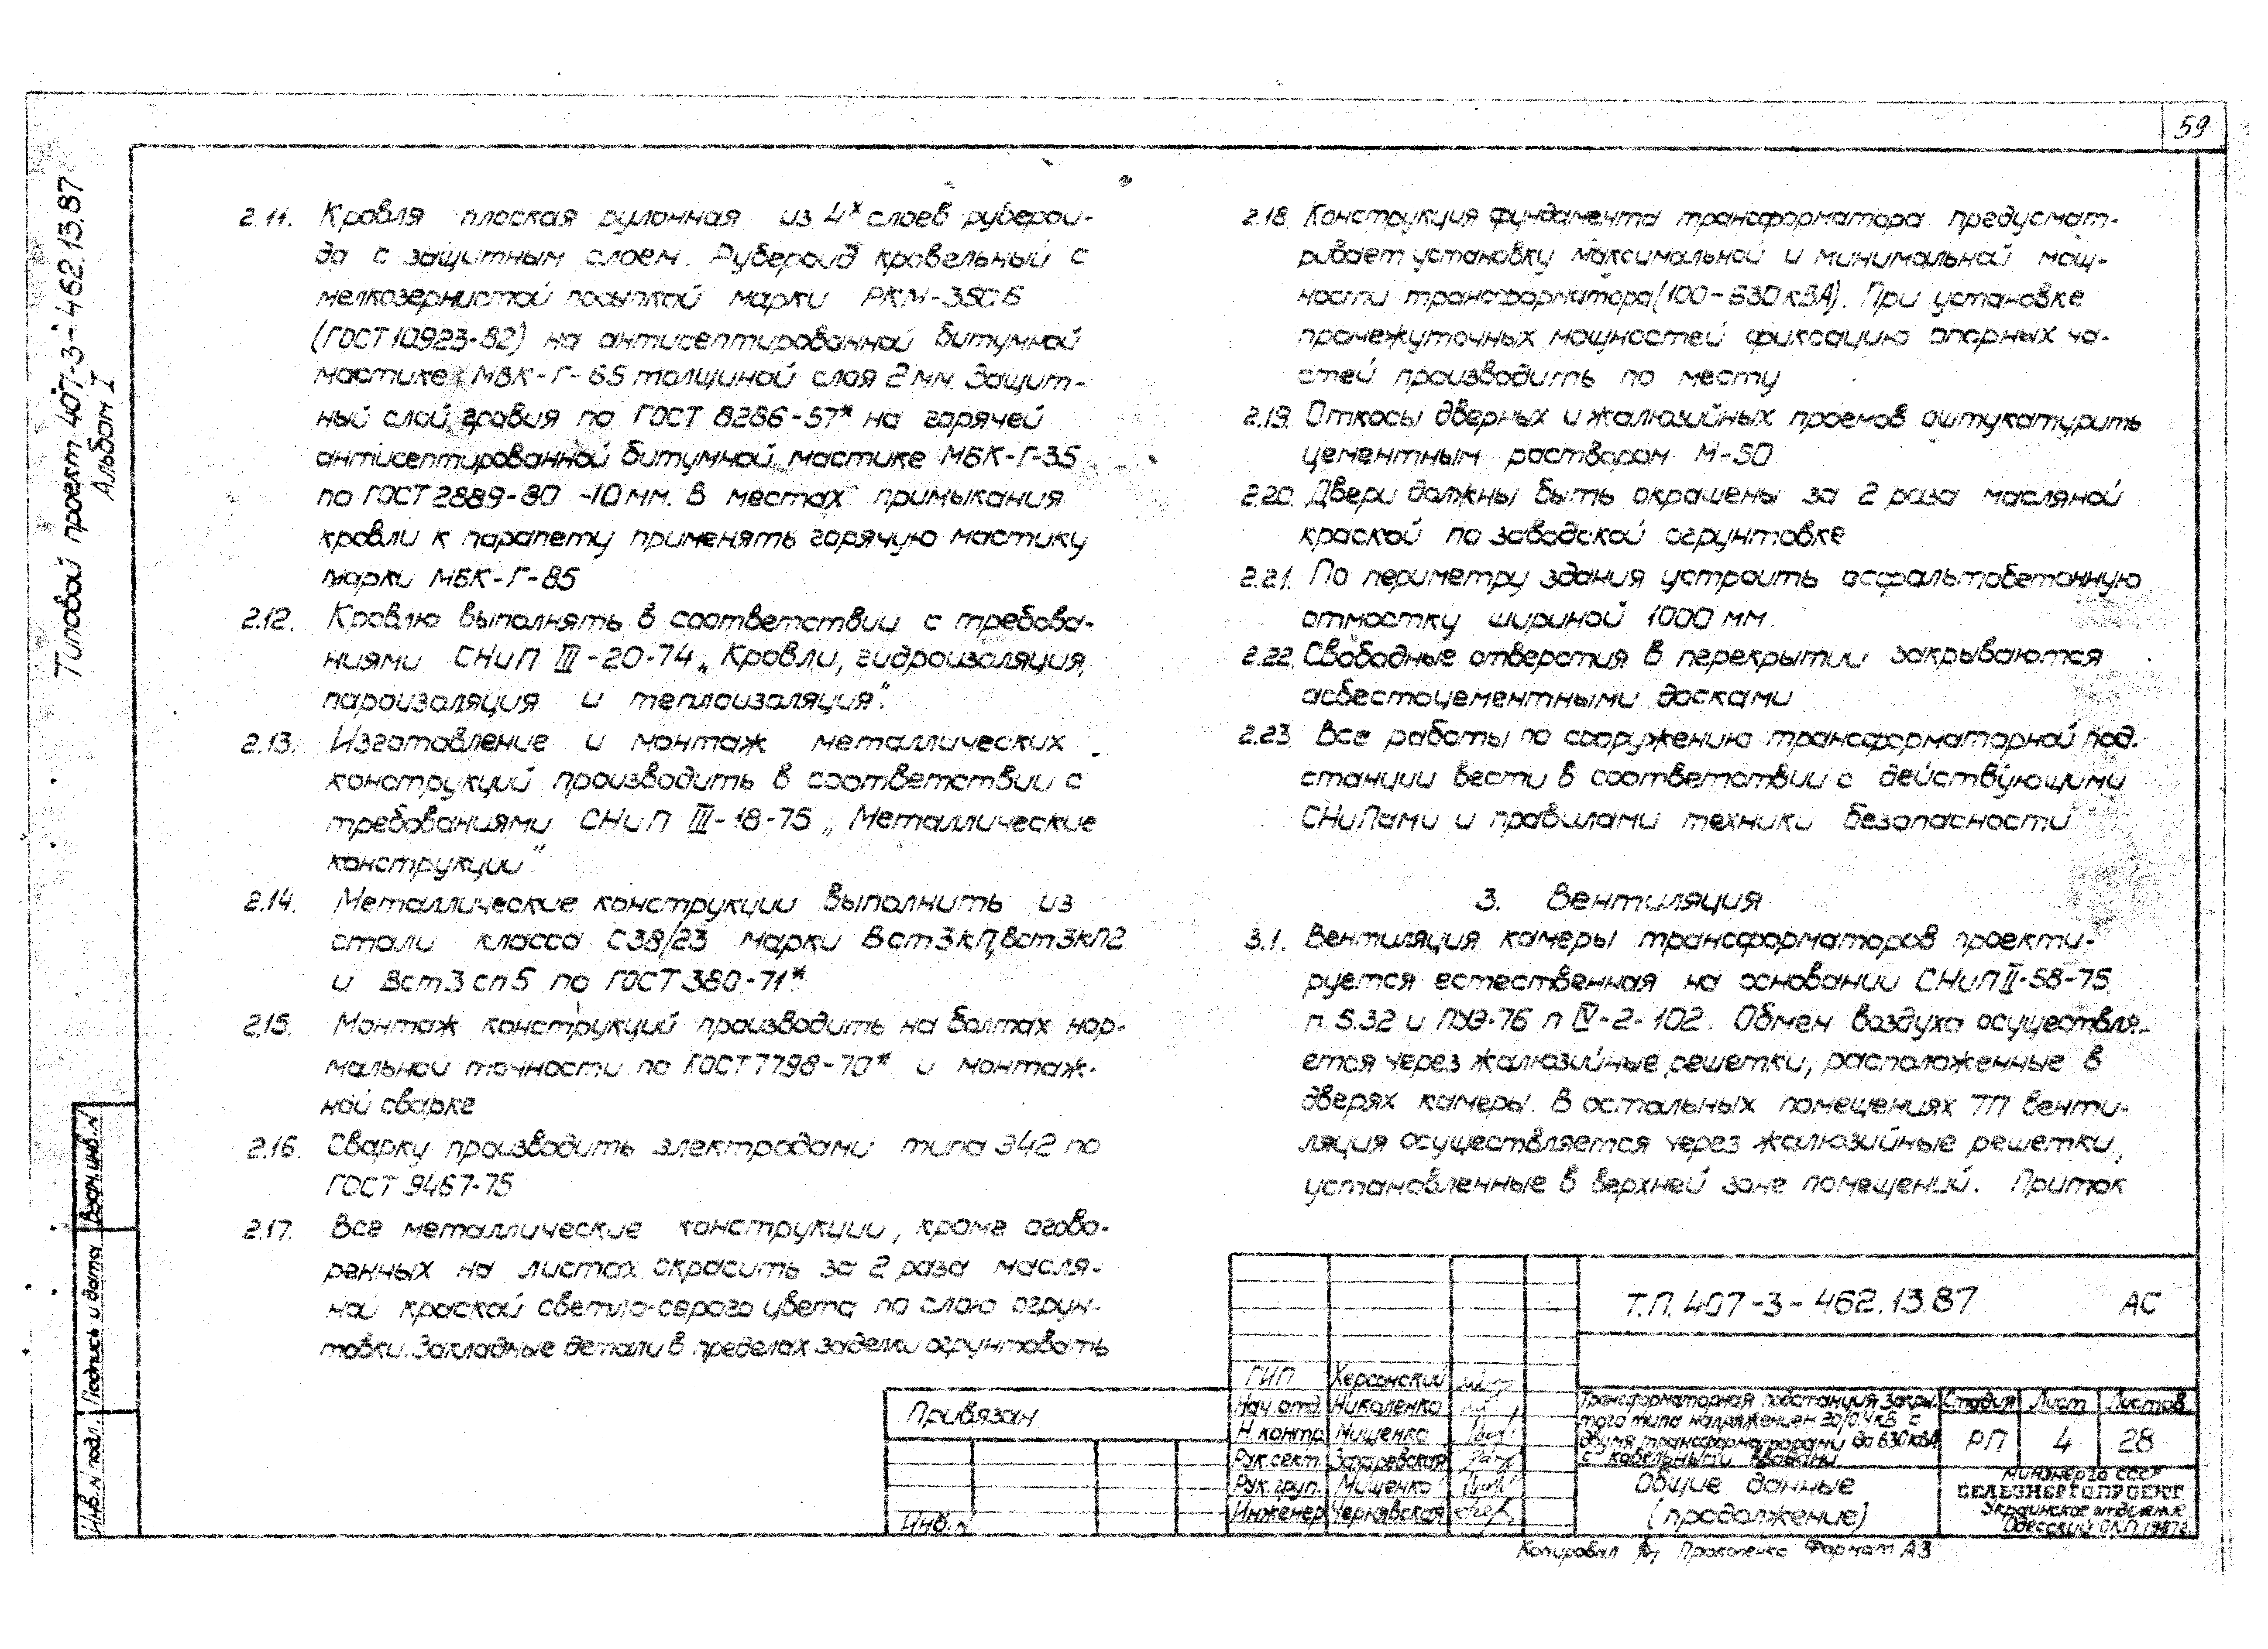 59
Типовой проект 407-3-462.13.87
Альбом I
2.11. Кровля плоская рулонная из 4х слоев руберои-
да с защитным слоем. Рубероид кровельный с
мелкозернистой посыпкой марки РКМ-350б
(ГОСТ 10923-82) на антисептированной битумной
мастике МБК-Г-65 толщиной слоя 2 мм. Защит-
ный слой гравия по ГОСТ 8286-57* на горячей
антисептированной битумной мастике МБК-Г-35
по ГОСТ 2889-80 -10 мм. В местах примыкания
кровли к парапету применять горячую мастику
марки МБК-Г-85
2.12. Кровлю выполнять в соответствии с требова-
ниями СНиП III-20-74 „Кровли, гидроизоляция,
пароизоляция и теплоизоляция".
2.13. Изготовление и монтаж металлических
конструкций производить в соответствии с
требованиями СНиП III-18-75 „Металлические
конструкции"
2.14. Металлические конструкции выполнить из
стали класса С38/23 марки Вст3кп, Вст3кп2
и Вст3сп5 по ГОСТ 380-71*
2.15. Монтаж конструкций производить на болтах нор-
мальной точности по ГОСТ 7798-70* и монтаж-
ной сварке
2.16. Сварку производить электродами типа Э42 по
ГОСТ 9467-75
2.17. Все металлические конструкции, кроме огово-
ренных на листах, окрасить за 2 раза масля-
ной краской светло-серого цвета по слою огрун-
товки. Закладные детали в пределах заделки огрунтовать
2.18. Конструкция фундамента трансформатора предусмат-
ривает установку максимальной и минимальной мощ-
ности трансформатора (100-630 кВА). При установке
промежуточных мощностей фиксацию опорных ча-
стей производить по месту
2.19. Откосы дверных и жалюзийных проемов оштукатурить
цементным раствором М-50
2.20. Двери должны быть окрашены за 2 раза масляной
краской по заводской огрунтовке
2.21. По периметру здания устроить асфальтобетонную
отмостку шириной 1000 мм.
2.22. Свободные отверстия в перекрытии закрываются
асбестоцементными досками
2.23. Все работы по сооружению трансформаторной под-
станции вести в соответствии с действующими
СНиПами и правилами техники безопасности
3. Вентиляция
3.1. Вентиляция камеры трансформаторов проекти-
руется естественная на основании СНиП II-58-75,
п 5.32 и ПУЭ-76 п IV-2-102. Обмен воздуха осуществля-
ется через жалюзийные решетки, расположенные в
дверях камеры. В остальных помещениях ТП венти-
ляция осуществляется через жалюзийные решетки,
установленные в верхней зоне помещений. Приток
Взам.инв.N
Подпись и дата
Инв.N подл.
Привязан
Инв.N
ГИП Херсонский
Нач.отд. Николенко
Н.контр. Мищенко
Рук.сект. Захаревская
Рук.груп. Мищенко
Инженер Чернявская
Т.П. 407-3-462.13.87 АС
Трансформаторная подстанция закры-
того типа напряжением 20/0.4кВ с
двумя трансформаторами до 630 кВА
с кабельными вводами
Стадия Лист Листов
РП 4 28
Общие данные
(продолжение)
Минэнерго СССР
СЕЛЬЭНЕРГОПРОЕКТ
Украинское отделение
Одесский ОКП 1987г.
Копировал Прокопенко Формат А3